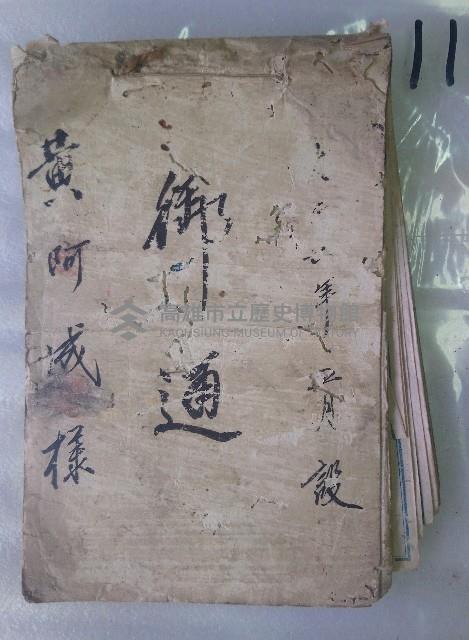 年
正月設
御
通
黃阿成樣
11
高雄市立歷史博物館
KAOHSIUNG MUSEUM OF HISTORY